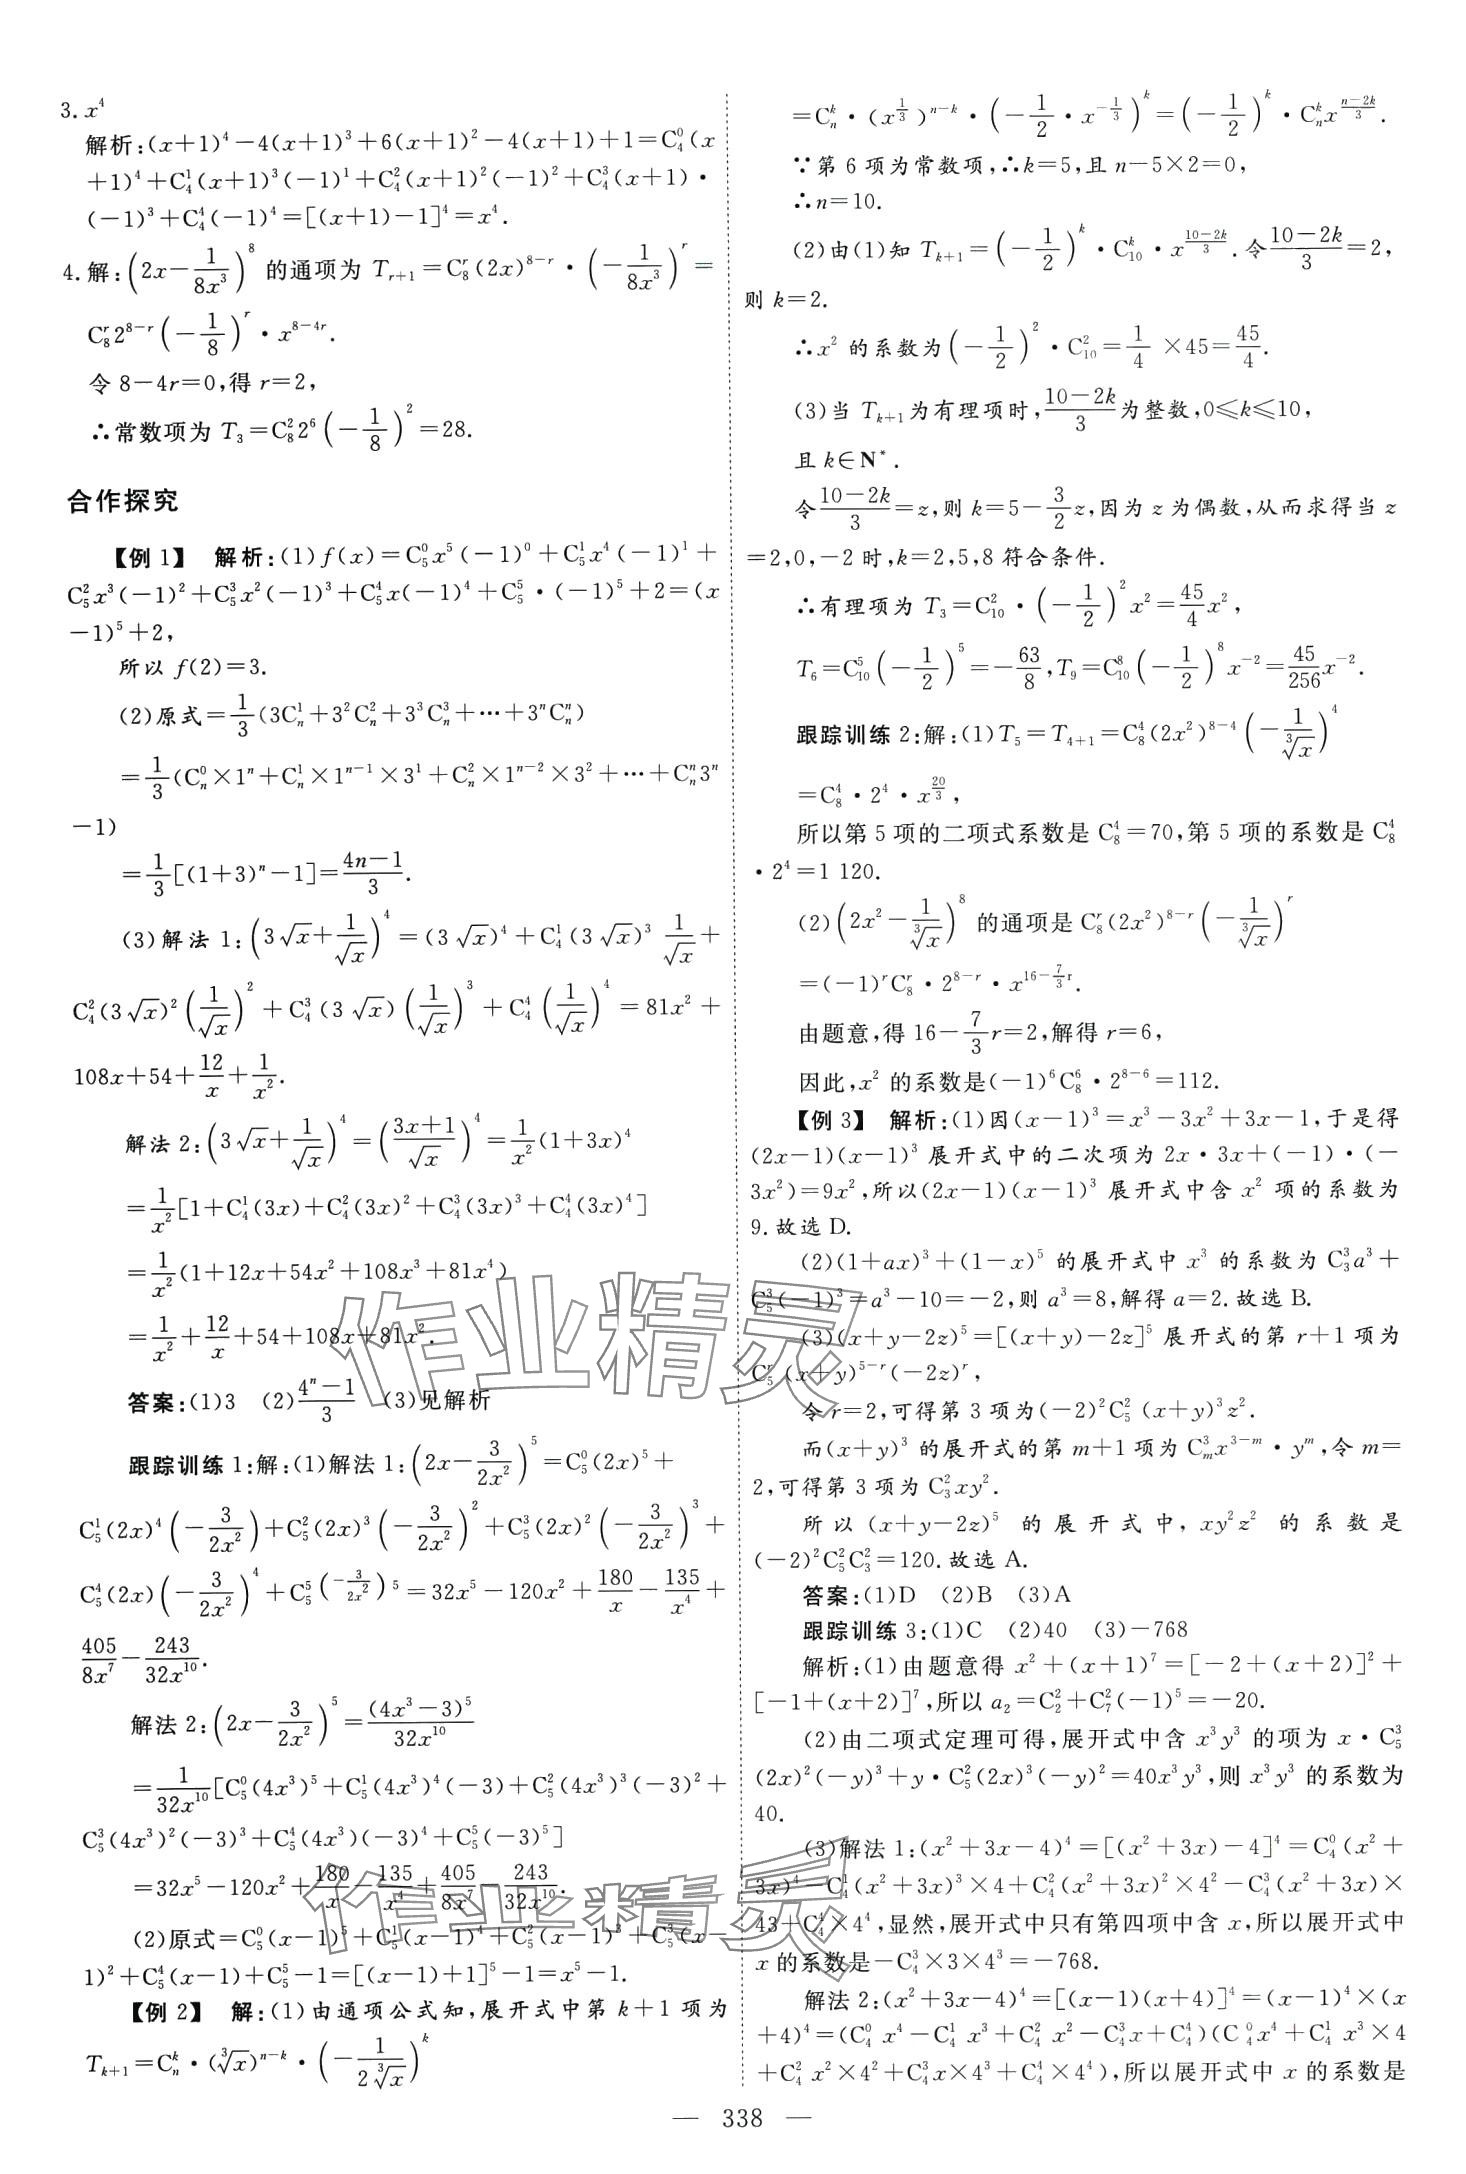 3. x⁴
解析:(x+1)⁴-4(x+1)³+6(x+1)²-4(x+1)+1=C₄⁰(x
+1)⁴+C₄¹(x+1)³(-1)¹+C₄²(x+1)²(-1)²+C₄³(x+1)·
(-1)³+C₄⁴(-1)⁴=[(x+1)-1]⁴=x⁴.
4. 解:(2x-1/(8x³))⁸ 的通项为 T_{r+1}=C₈^r(2x)^{8-r}·(-1/(8x³))^r=
C₈^r 2^{8-r}(-1/8)^r·x^{8-4r}.
令 8-4r=0,得 r=2,
∴常数项为 T₃=C₈²2⁶(-1/8)²=28.
合作探究
【例 1】 解析:(1)f(x)=C₅⁰x⁵(-1)⁰+C₅¹x⁴(-1)¹+
C₅²x³(-1)²+C₅³x²(-1)³+C₅⁴x(-1)⁴+C₅⁵·(-1)⁵+2=(x
-1)⁵+2,
所以 f(2)=3.
(2)原式=1/3(3C_n¹+3²C_n²+3³C_n³+…+3ⁿC_nⁿ)
=1/3(C_n⁰×1ⁿ+C_n¹×1^{n-1}×3¹+C_n²×1^{n-2}×3²+…+C_nⁿ3ⁿ
-1)
=1/3[(1+3)ⁿ-1]=(4n-1)/3.
(3)解法 1:(3√x+1/√x)⁴=(3√x)⁴+C₄¹(3√x)³ 1/√x+
C₄²(3√x)²(1/√x)²+C₄³(3√x)(1/√x)³+C₄⁴(1/√x)⁴=81x²+
108x+54+12/x+1/x².
解法 2:(3√x+1/√x)⁴=((3x+1)/√x)⁴=1/x²(1+3x)⁴
=1/x²[1+C₄¹(3x)+C₄²(3x)²+C₄³(3x)³+C₄⁴(3x)⁴]
=1/x²(1+12x+54x²+108x³+81x⁴)
=1/x²+12/x+54+108x+81x².
答案:(1)3 (2)(4ⁿ-1)/3 (3)见解析
跟踪训练 1:解:(1)解法 1:(2x-3/(2x²))⁵=C₅⁰(2x)⁵+
C₅¹(2x)⁴(-3/(2x²))+C₅²(2x)³(-3/(2x²))²+C₅³(2x)²(-3/(2x²))³+
C₅⁴(2x)(-3/(2x²))⁴+C₅⁵(-3/(2x²))⁵=32x⁵-120x²+180/x-135/x⁴+
405/(8x⁷)-243/(32x¹⁰).
解法 2:(2x-3/(2x²))⁵=(4x³-3)⁵/(32x¹⁰)
=1/(32x¹⁰)[C₅⁰(4x³)⁵+C₅¹(4x³)⁴(-3)+C₅²(4x³)³(-3)²+
C₅³(4x³)²(-3)³+C₅⁴(4x³)(-3)⁴+C₅⁵(-3)⁵]
=32x⁵-120x²+180/x-135/x⁴+405/(8x⁷)-243/(32x¹⁰).
(2)原式=C₅⁰(x-1)⁵+C₅¹(x-1)⁴+C₅²(x-1)³+C₅³(x-
1)²+C₅⁴(x-1)+C₅⁵-1=[(x-1)+1]⁵-1=x⁵-1.
【例 2】 解:(1)由通项公式知,展开式中第 k+1 项为
T_{k+1}=C_n^k·(∛x)^{n-k}·(-1/(2∛x))^k
=C_n^k·(x^{1/3})^{n-k}·(-1/2·x^{-1/3})^k=(-1/2)^k·C_n^k x^{(n-2k)/3}.
∵第 6 项为常数项,∴k=5,且 n-5×2=0,
∴n=10.
(2)由(1)知 T_{k+1}=(-1/2)^k·C₁₀^k·x^{(10-2k)/3}.令(10-2k)/3=2,
则 k=2.
∴x² 的系数为(-1/2)²·C₁₀²=1/4 ×45=45/4.
(3)当 T_{k+1}为有理项时,(10-2k)/3为整数,0≤k≤10,
且 k∈N*.
令(10-2k)/3=z,则 k=5-3/2z,因为 z 为偶数,从而求得当 z
=2,0,-2 时,k=2,5,8 符合条件.
∴有理项为 T₃=C₁₀²·(-1/2)²x²=45/4x²,
T₆=C₁₀⁵(-1/2)⁵=-63/8,T₉=C₁₀⁸(-1/2)⁸x⁻²=45/256x⁻².
跟踪训练 2:解:(1)T₅=T₄₊₁=C₈⁴(2x²)^{8-4}(-1/∛x)⁴
=C₈⁴·2⁴·x^{20/3},
所以第 5 项的二项式系数是 C₈⁴=70,第 5 项的系数是 C₈⁴
·2⁴=1 120.
(2)(2x²-1/∛x)⁸ 的通项是 C₈^r(2x²)^{8-r}(-1/∛x)^r
=(-1)^r C₈^r·2^{8-r}·x^{16-7/3r}.
由题意,得 16-7/3r=2,解得 r=6,
因此,x² 的系数是(-1)⁶C₈⁶·2^{8-6}=112.
【例 3】 解析:(1)因(x-1)³=x³-3x²+3x-1,于是得
(2x-1)(x-1)³ 展开式中的二次项为 2x·3x+(-1)·(-
3x²)=9x²,所以(2x-1)(x-1)³ 展开式中含 x² 项的系数为
9.故选 D.
(2)(1+ax)³+(1-x)⁵ 的展开式中 x³ 的系数为 C₃³a³+
C₅³(-1)³=a³-10=-2,则 a³=8,解得 a=2.故选 B.
(3)(x+y-2z)⁵=[(x+y)-2z]⁵ 展开式的第 r+1 项为
C₅^r(x+y)^{5-r}(-2z)^r,
令 r=2,可得第 3 项为(-2)²C₅²(x+y)³z².
而(x+y)³ 的展开式的第 m+1 项为 C_m³x^{3-m}·y^m,令 m=
2,可得第 3 项为 C₃²xy².
所以(x+y-2z)⁵ 的展开式中,xy²z² 的系数是
(-2)²C₅²C₃²=120.故选 A.
答案:(1)D (2)B (3)A
跟踪训练 3:(1)C (2)40 (3)-768
解析:(1)由题意得 x²+(x+1)⁷=[-2+(x+2)]²+
[-1+(x+2)]⁷,所以 a₂=C₂²+C₇²(-1)⁵=-20.
(2)由二项式定理可得,展开式中含 x³y³ 的项为 x·C₅³
(2x)²(-y)³+y·C₅²(2x)³(-y)²=40x³y³,则 x³y³ 的系数为
40.
(3)解法 1:(x²+3x-4)⁴=[(x²+3x)-4]⁴=C₄⁰(x²+
3x)⁴-C₄¹(x²+3x)³×4+C₄²(x²+3x)²×4²-C₄³(x²+3x)×
43+C₄⁴×4⁴,显然,展开式中只有第四项中含 x,所以展开式中
x 的系数是-C₄³×3×4³=-768.
解法 2:(x²+3x-4)⁴=[(x-1)(x+4)]⁴=(x-1)⁴×(x
+4)⁴=(C₄⁰ x⁴-C₄¹ x³+C₄² x²-C₄³x+C₄⁴)(C₄⁰x⁴+C₄¹ x³×4
+C₄² x²×4²+C₄³x×4³+C₄⁴×4⁴),所以展开式中 x 的系数是
— 338 —
作业精灵
作业精灵